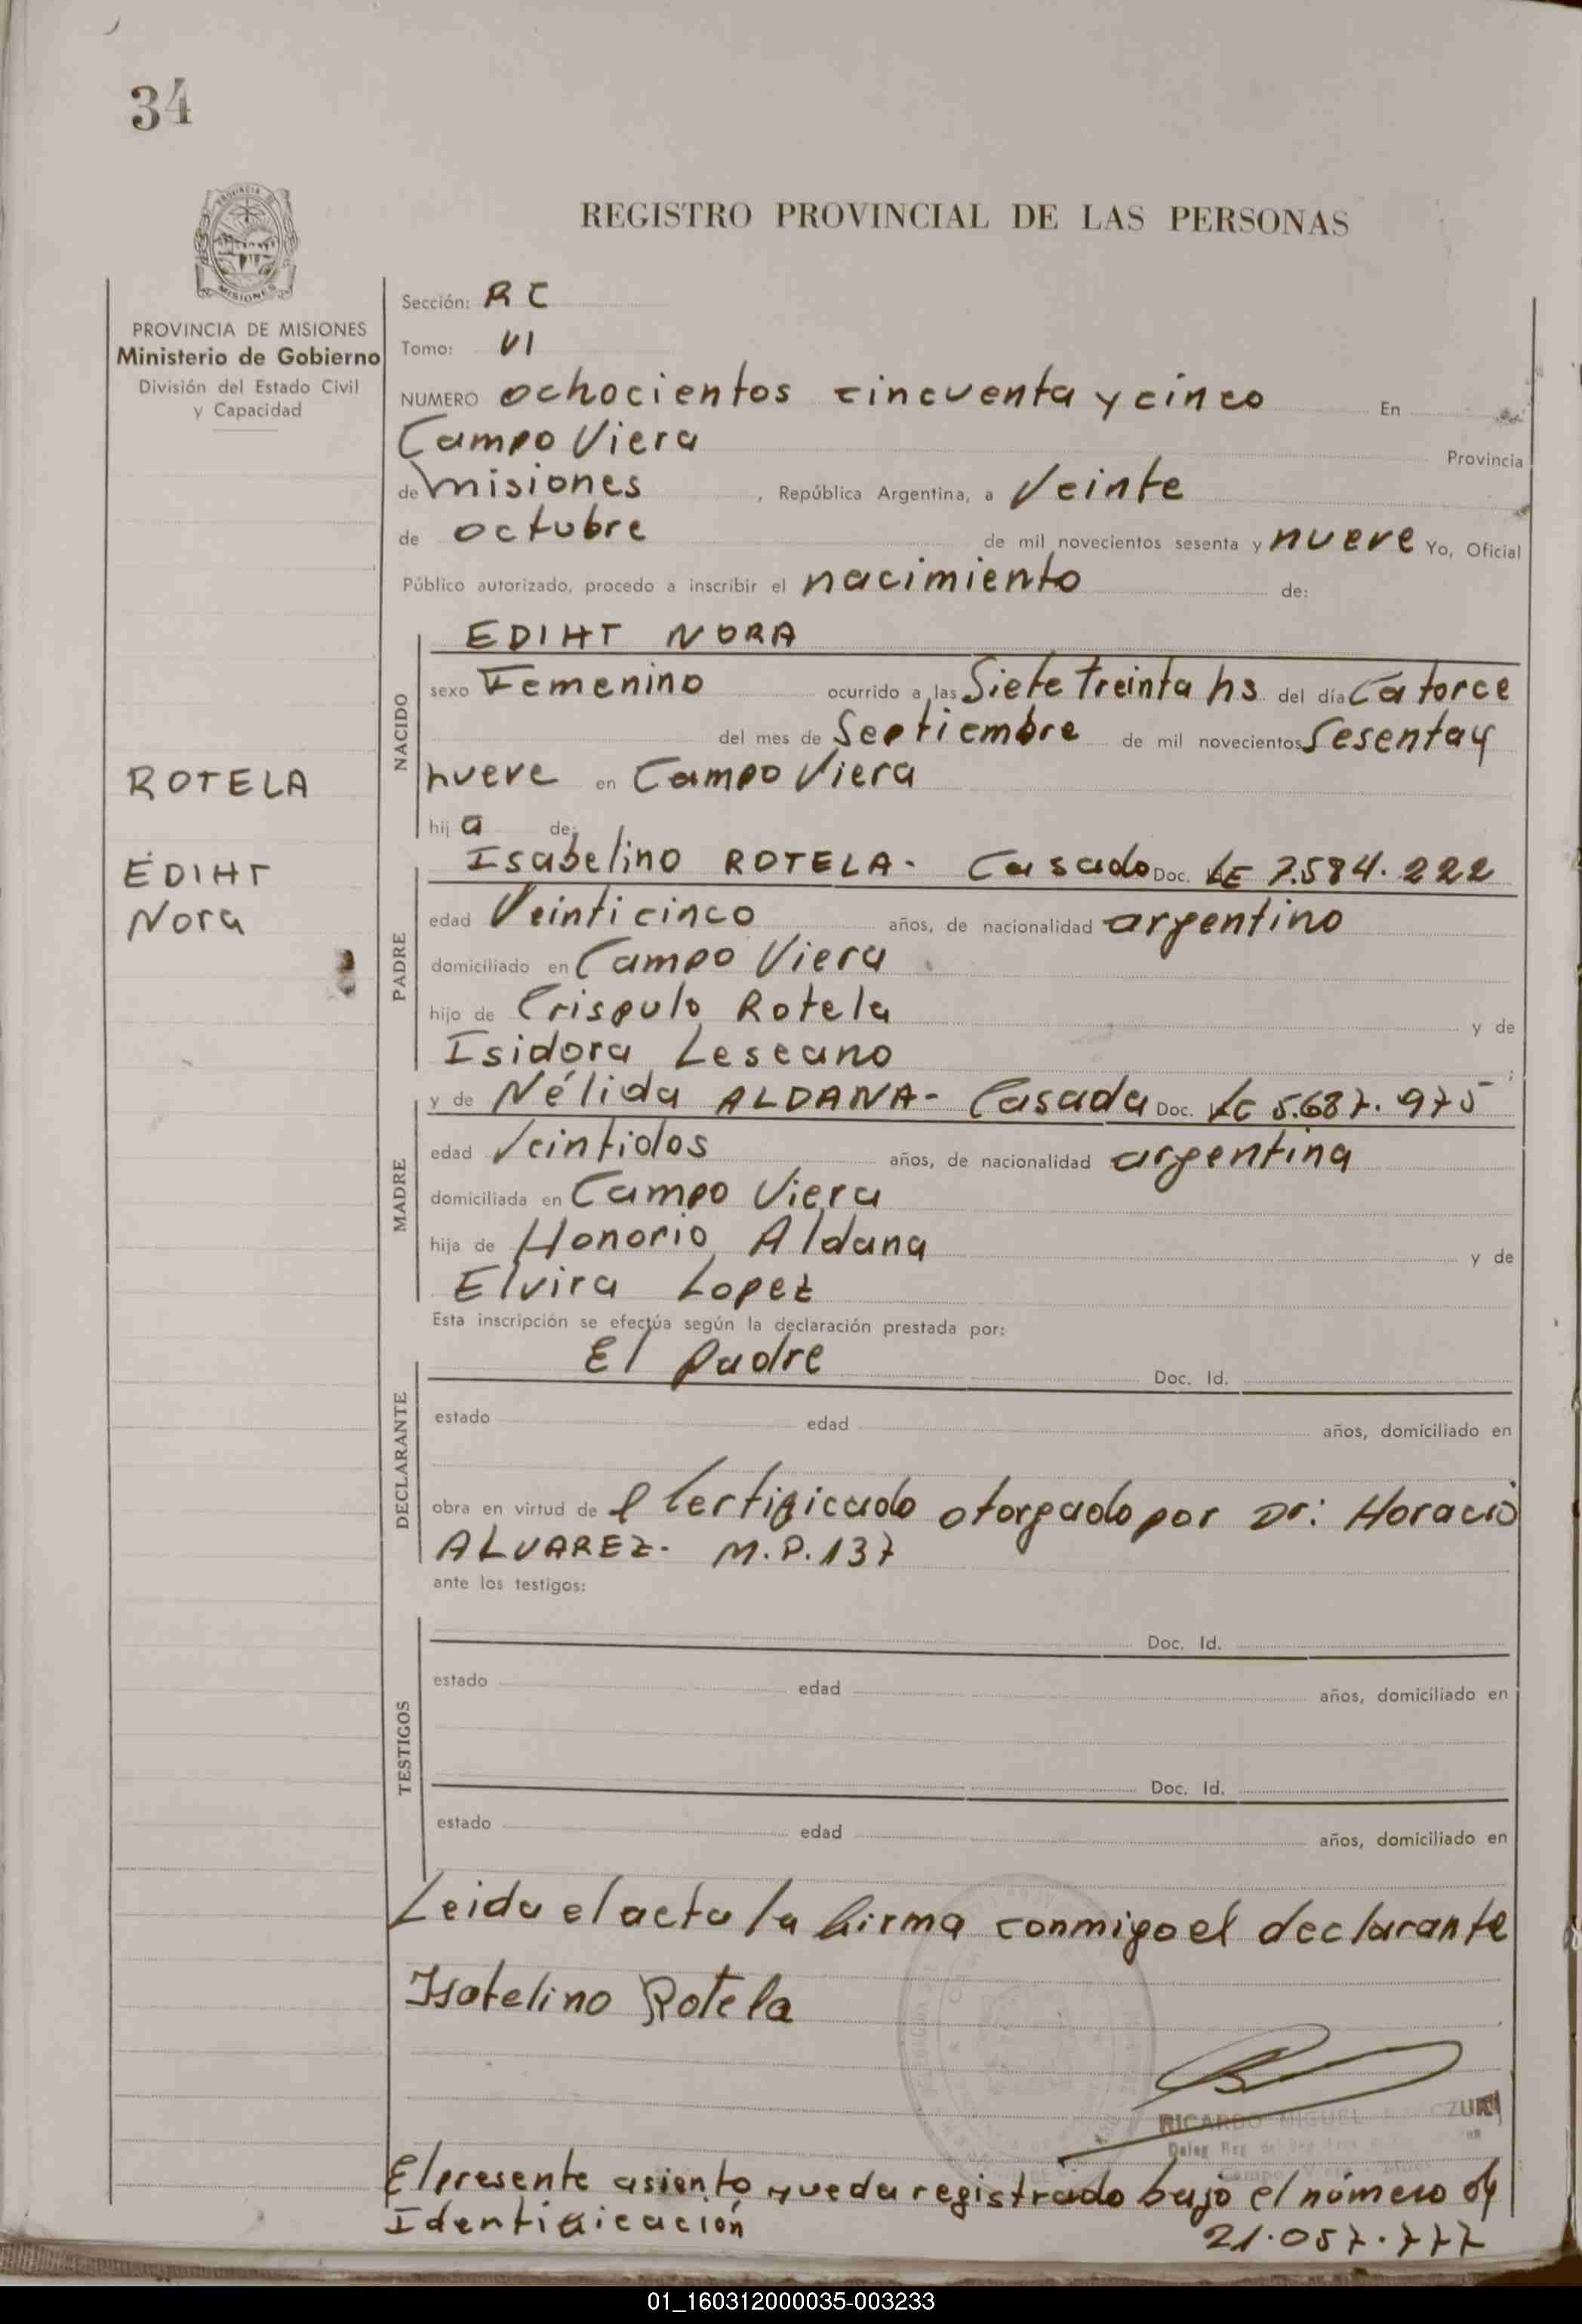 34
PROVINCIA
MISIONES
REGISTRO PROVINCIAL DE LAS PERSONAS
PROVINCIA DE MISIONES
Ministerio de Gobierno
División del Estado Civil
y Capacidad
Sección: RC
Tomo: VI
NUMERO ochocientos cincuenta y cinco En
Campo Viera Provincia
de Misiones , República Argentina, a Veinte
de octubre de mil novecientos sesenta y nueve Yo, Oficial
Público autorizado, procedo a inscribir el nacimiento de:
ROTELA
EDIHT
Nora
NACIDO
EDIHT NORA
sexo Femenino ocurrido a las Siete treinta hs del día Catorce
del mes de Septiembre de mil novecientos Sesenta y
nueve en Campo Viera
hij a de:
PADRE
Isabelino ROTELA- Casado Doc. LE 7.584.222
edad Veinticinco años, de nacionalidad argentino
domiciliado en Campo Viera
hijo de Crispulo Rotela y de
Isidora Lescano ;
MADRE
y de Nélida ALDANA- Casada Doc. LC 5.687.975
edad Veintidos años, de nacionalidad argentina
domiciliada en Campo Viera
hija de Honorio Aldana y de
Elvira Lopez
Esta inscripción se efectúa según la declaración prestada por:
DECLARANTE
El Padre Doc. Id.
estado edad años, domiciliado en
obra en virtud de l Certificado otorgado por Dr: Horacio
ALVAREZ- M.P.137
ante los testigos:
TESTIGOS
Doc. Id.
estado edad años, domiciliado en
Doc. Id.
estado edad años, domiciliado en
Leida el acta la firma conmigo el declarante
Isabelino Rotela
RICARDO MIGUEL
Campo Viera
El presente asiento queda registrado bajo el número de
Identificación 21.057.777
01_160312000035-003233